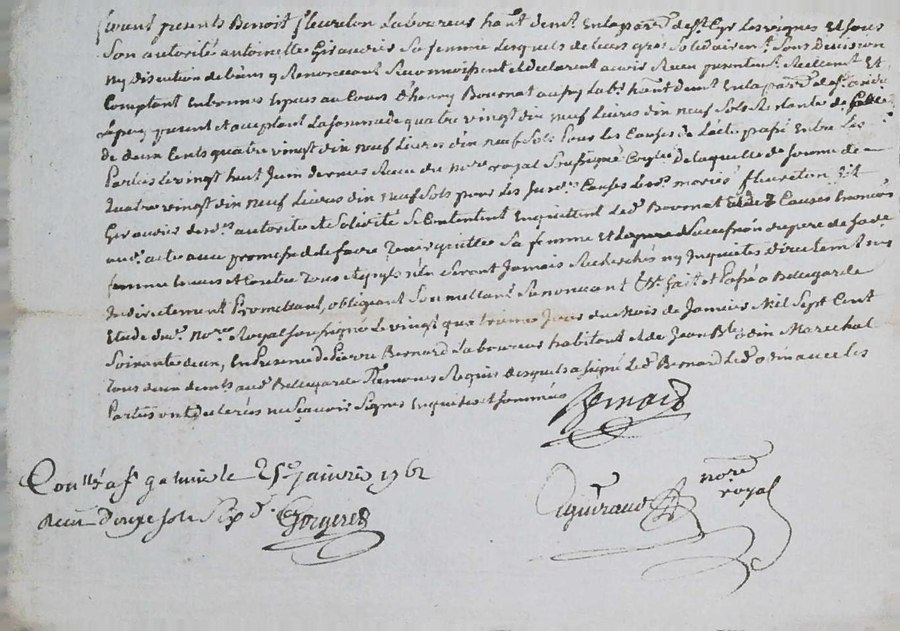 furent presents Benoit fleureton Laboureur habt demt En la paroe de st Cyr Les vignes Et sous
Son autorité antoinette Giraudier Sa femme Lesquels de Leurs grés Solidairemt Sans Division
ny Discution de biens y Renonceant Reconnoissent et declarent avoir Receu presentemt Reellemt Et
Comptant En bonnes Especes au Cours d'henry Bournat aussy Labr habt demt En la paroe de st
present et acceptant La somme de quatre vingt dix neuf Livres dix neuf Sols Restante de Celle
de deux Cents quatre vingt dix neuf Livres dix neuf Sols pour Les Causes de L'acte passé Entre Les
Parties Le vingt huit Juin dernier Receu du nore royal Soussigné de Laquelle de somme de
quatre vingt dix neuf Livres dix neuf Sols pour Les susd. Causes Les d. mariés fleureton Et
Giraudier de d. autorité et Solidité Se Contentent En quittent Led. Bournat des Causes Enoncées
aud. acte avec promesse de Le faire Tenir quitte Sa femme Et
femme Envers et Contre Tous et qu'ils n'En Seront Jamais Recherchés ny Inquietés directement ny
Indirectement Promettant, obligeant Soumettant Renonceant &a fait et Passé a Bellegarde
Etude du d. nore Royal soussigné Le vingt quatrieme Jour du Mois de Janvier Mil Sept Cent
Soixante deux, En Presence de Pierre Bernard Laboureur habitant et de Jean Bte odin Marechal
Tous deux demts aud. Bellegarde Temoins Requis desquels a signé Led. Bernard Led. odin avec Les
Parties ont declarés ne Sçavoir Signer Enquis et Sommés
Bernard
Conllé a st galmier le 25e janvier 1762
Receu Douze sols Six d. Gorgeret
Guiraud nore
royal